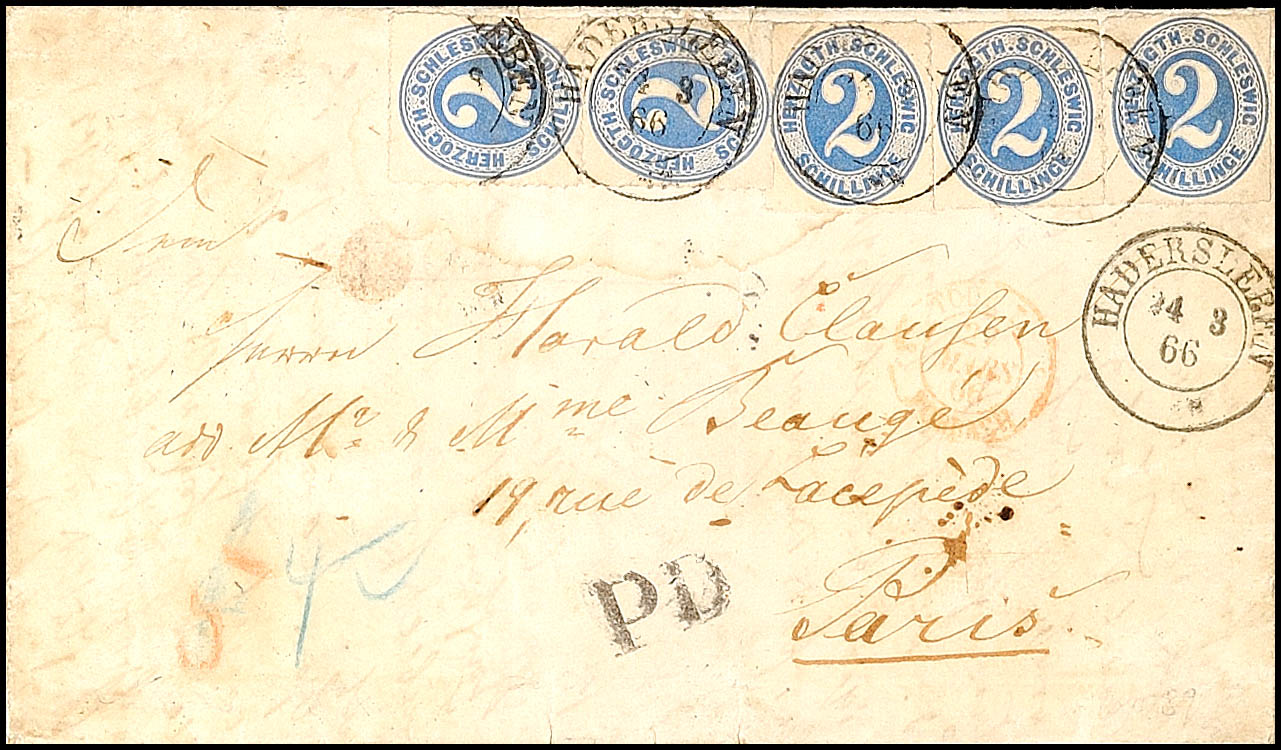 HERZOGTH. SCHLESWIG 2 SCHILLINGE
HERZOGTH. SCHLESWIG 2 SCHILLINGE
HERZOGTH. SCHLESWIG 2 SCHILLINGE
HERZOGTH. SCHLESWIG 2 SCHILLINGE
HERZOGTH. SCHLESWIG 2 SCHILLINGE
HADERSLEBEN
3
66
HADERSLEBEN
24 3
66
Dem
Herrn Harald Clausen
add Mr & Mme Beaugé
19, rue de Lacepède
Paris
PD